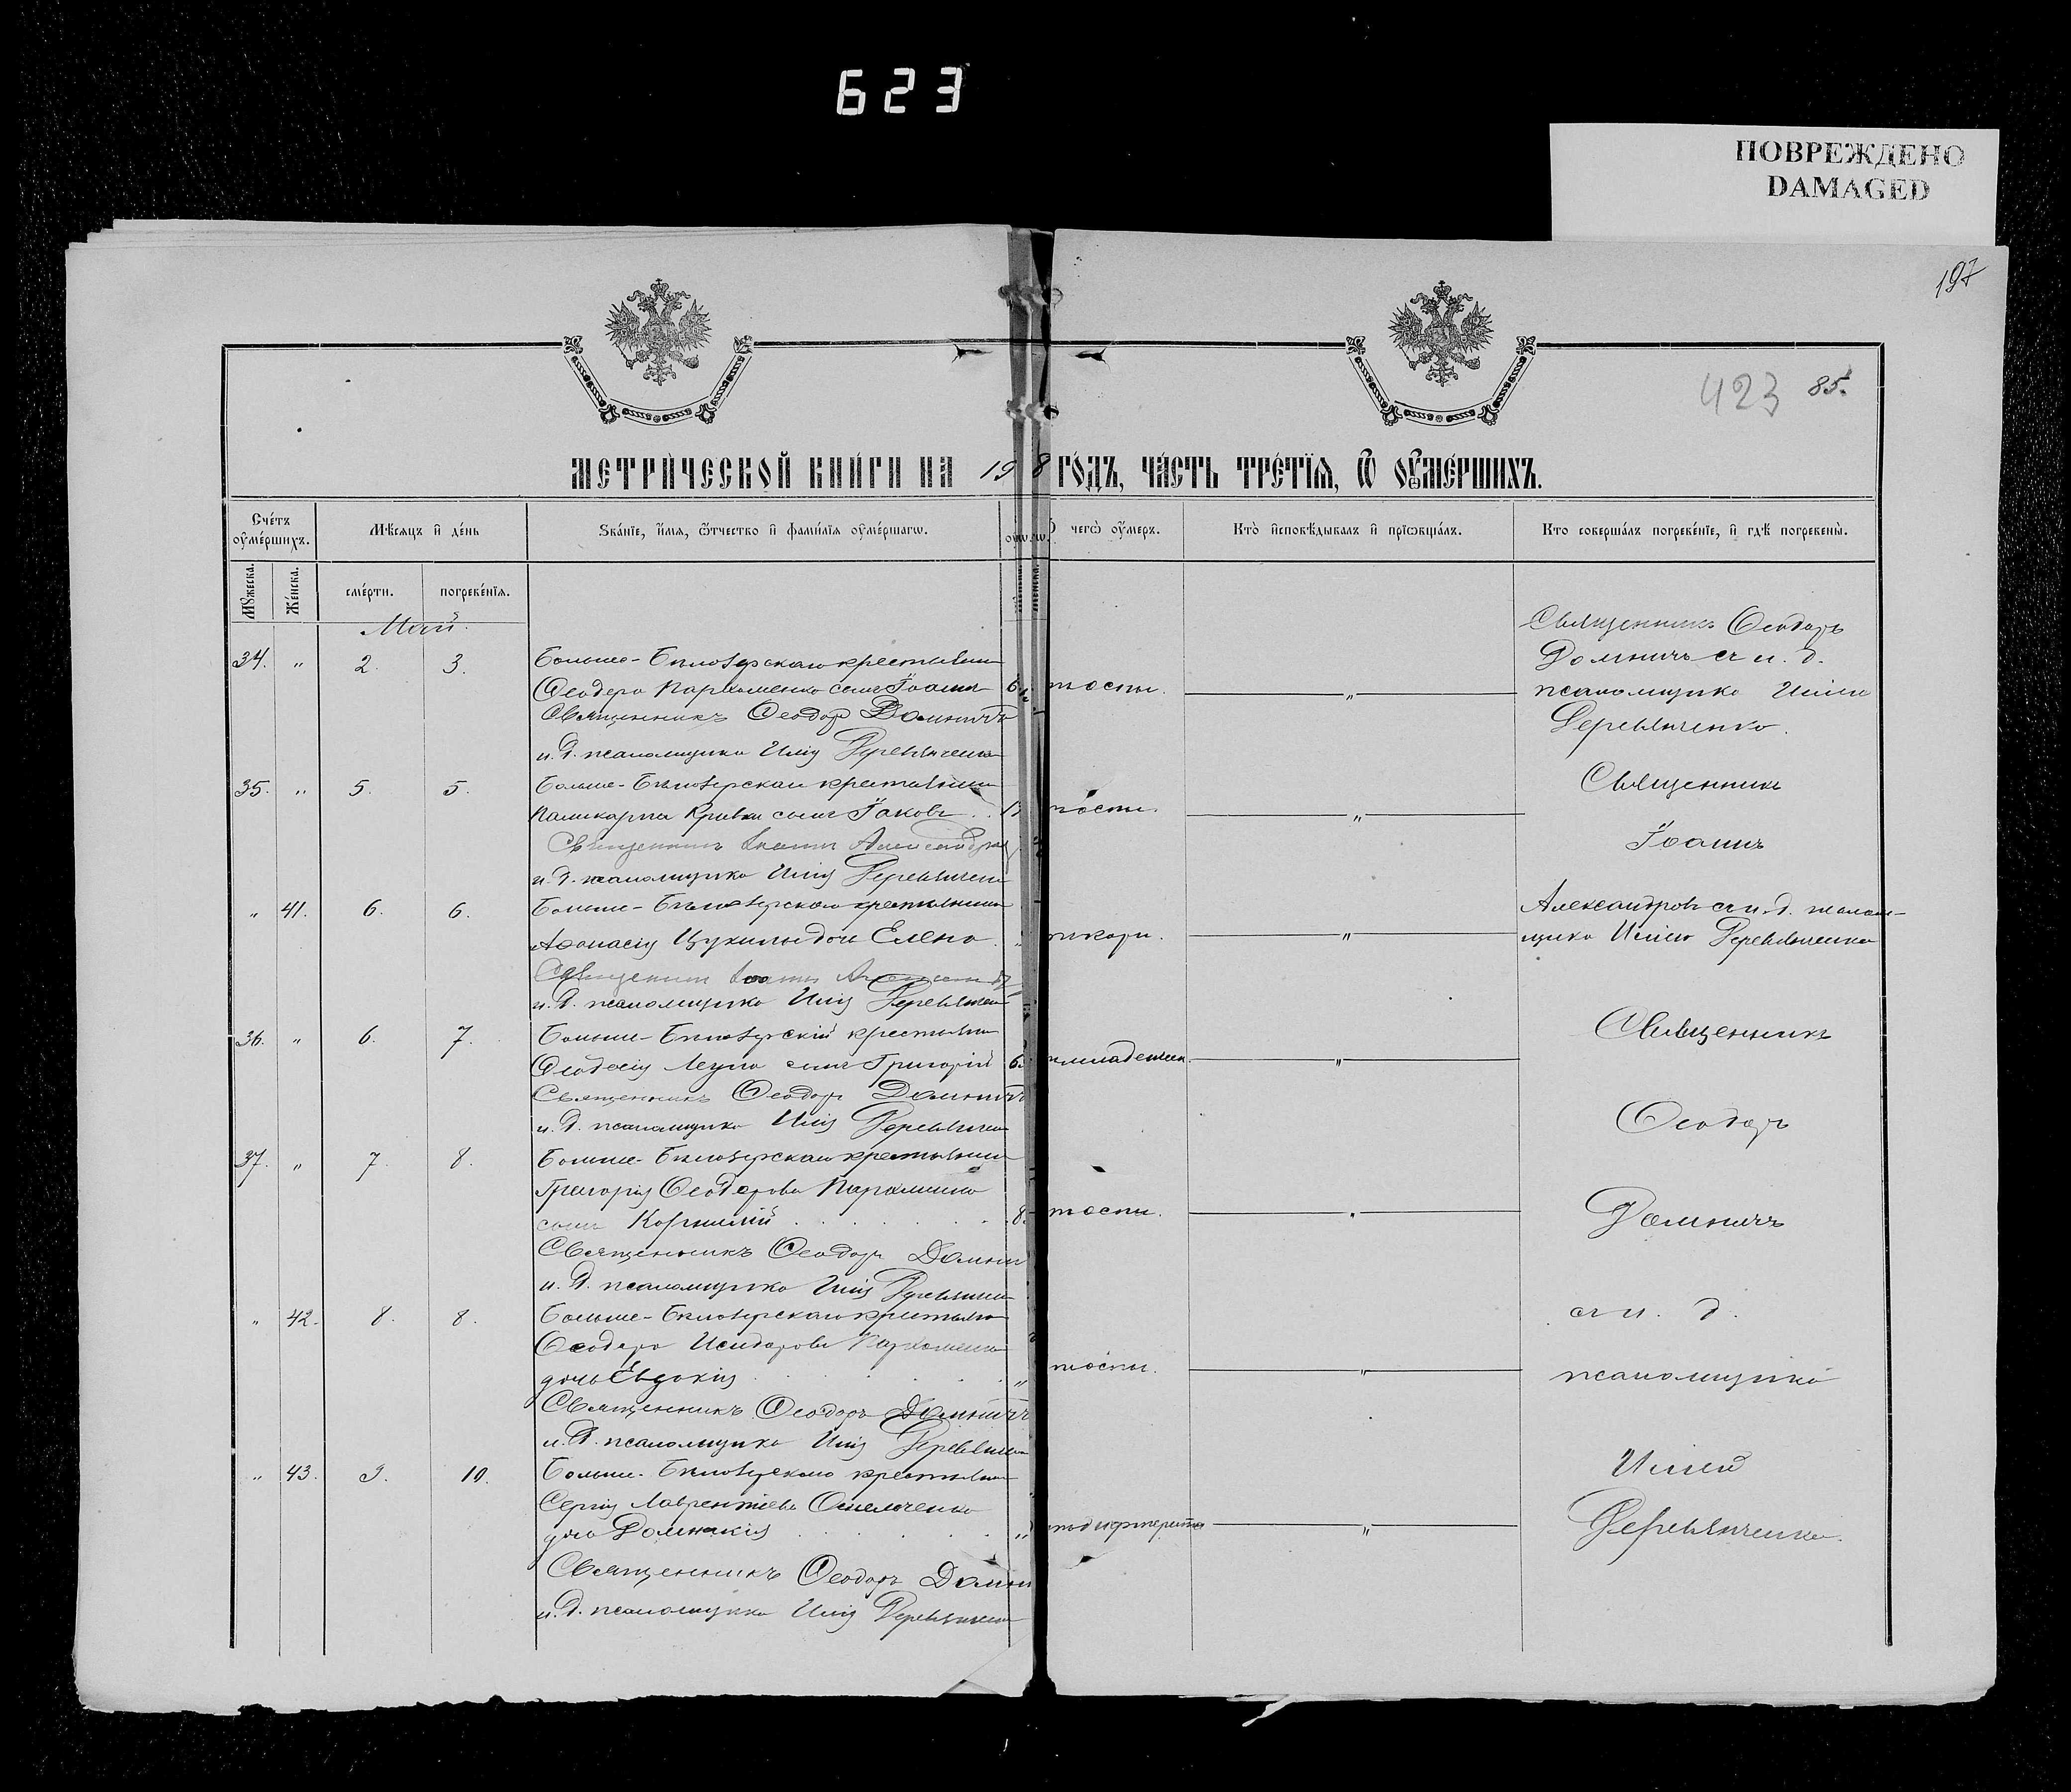 623
ПОВРЕЖДЕНО
DAMAGED
197
423 85.
МЕТРИ́ЧЕСКОЙ КНИ́ГИ НА 19 8 ГО́ДЪ, ЧА́СТЬ ТРЕ́ТЇѦ, Ѿ ОУ҆МЕ́РШИХЪ.
Сче́тъ оу҆ме́ршихъ.
Мѣ́сѧцъ и҆ де́нь
Зва́нїе, и҆́мѧ, ѻ҆́тчество и҆ фами́лїѧ оу҆ме́ршагѡ.
чегѡ̀ оу҆́меръ.
Кто̀ и҆сповѣ́дывалъ и҆ прїѡбща́лъ.
Кто соверша́лъ погребе́нїе, и҆ гдѣ̀ погребены̀.
Мꙋ́жеска.
Же́нска.
сме́рти.
погребе́нїѧ.
Май.
34. " 2. 3.
Больше-Бѣлозерскаго крестьянина
Ѳеодора Пархоменко сынъ Іоаннъ
Священникъ Ѳеодоръ Домничъ
и. д. псаломщика Илія Деревянченко
тости. "
Священникъ Ѳеодоръ
Домничъ съ и. д.
псаломщика Иліею
Деревянченко.
35. " 5. 5.
Больше-Бѣлозерскаго крестьянина
Поликарпа Кривки сынъ Іаковъ
Священникъ Іоаннъ Александров
и. д. псаломщика Илія Деревянченко
тости. "
Священникъ
Іоаннъ
" 41. 6. 6.
Больше-Бѣлозерскаго крестьянина
Аѳанасія дочь Елена
Священникъ Іоаннъ
и. д. псаломщика Илія Деревянченко
кори. "
Александровъ съ и. д. псалом-
щика Иліею Деревянченко
36. " 6. 7.
Больше-Бѣлозерскій крестьянин
Ѳеодосія сынъ Григорій
Священникъ Ѳеодоръ Домничъ
и. д. псаломщика Илія Деревянченко
младенческ. "
Священникъ
Ѳеодоръ
37. " 7. 8.
Больше-Бѣлозерскаго крестьянина
Григорія Ѳеодорова Пархоменко
сынъ Корнилій 8
Священникъ Ѳеодоръ Домнич
и. д. псаломщика Илія Деревянченко
тости. "
Домничъ
" 42. 8. 8.
Больше-Бѣлозерскаго крестьянина
Ѳеодора Исидорова Пархоменко
дочь Евдокія "
Священникъ Ѳеодоръ Домничъ
и. д. псаломщика Илія Деревянченко
тости. "
съ и. д.
псаломщика
" 43. 9. 10.
Больше-Бѣлозерскаго крестьянина
Сергія Лаврентіева Омельченко
дочь Домникія "
Священникъ Ѳеодоръ Домни
и. д. псаломщика Илія Деревянченко
дифтерита "
Иліею
Деревянченко.